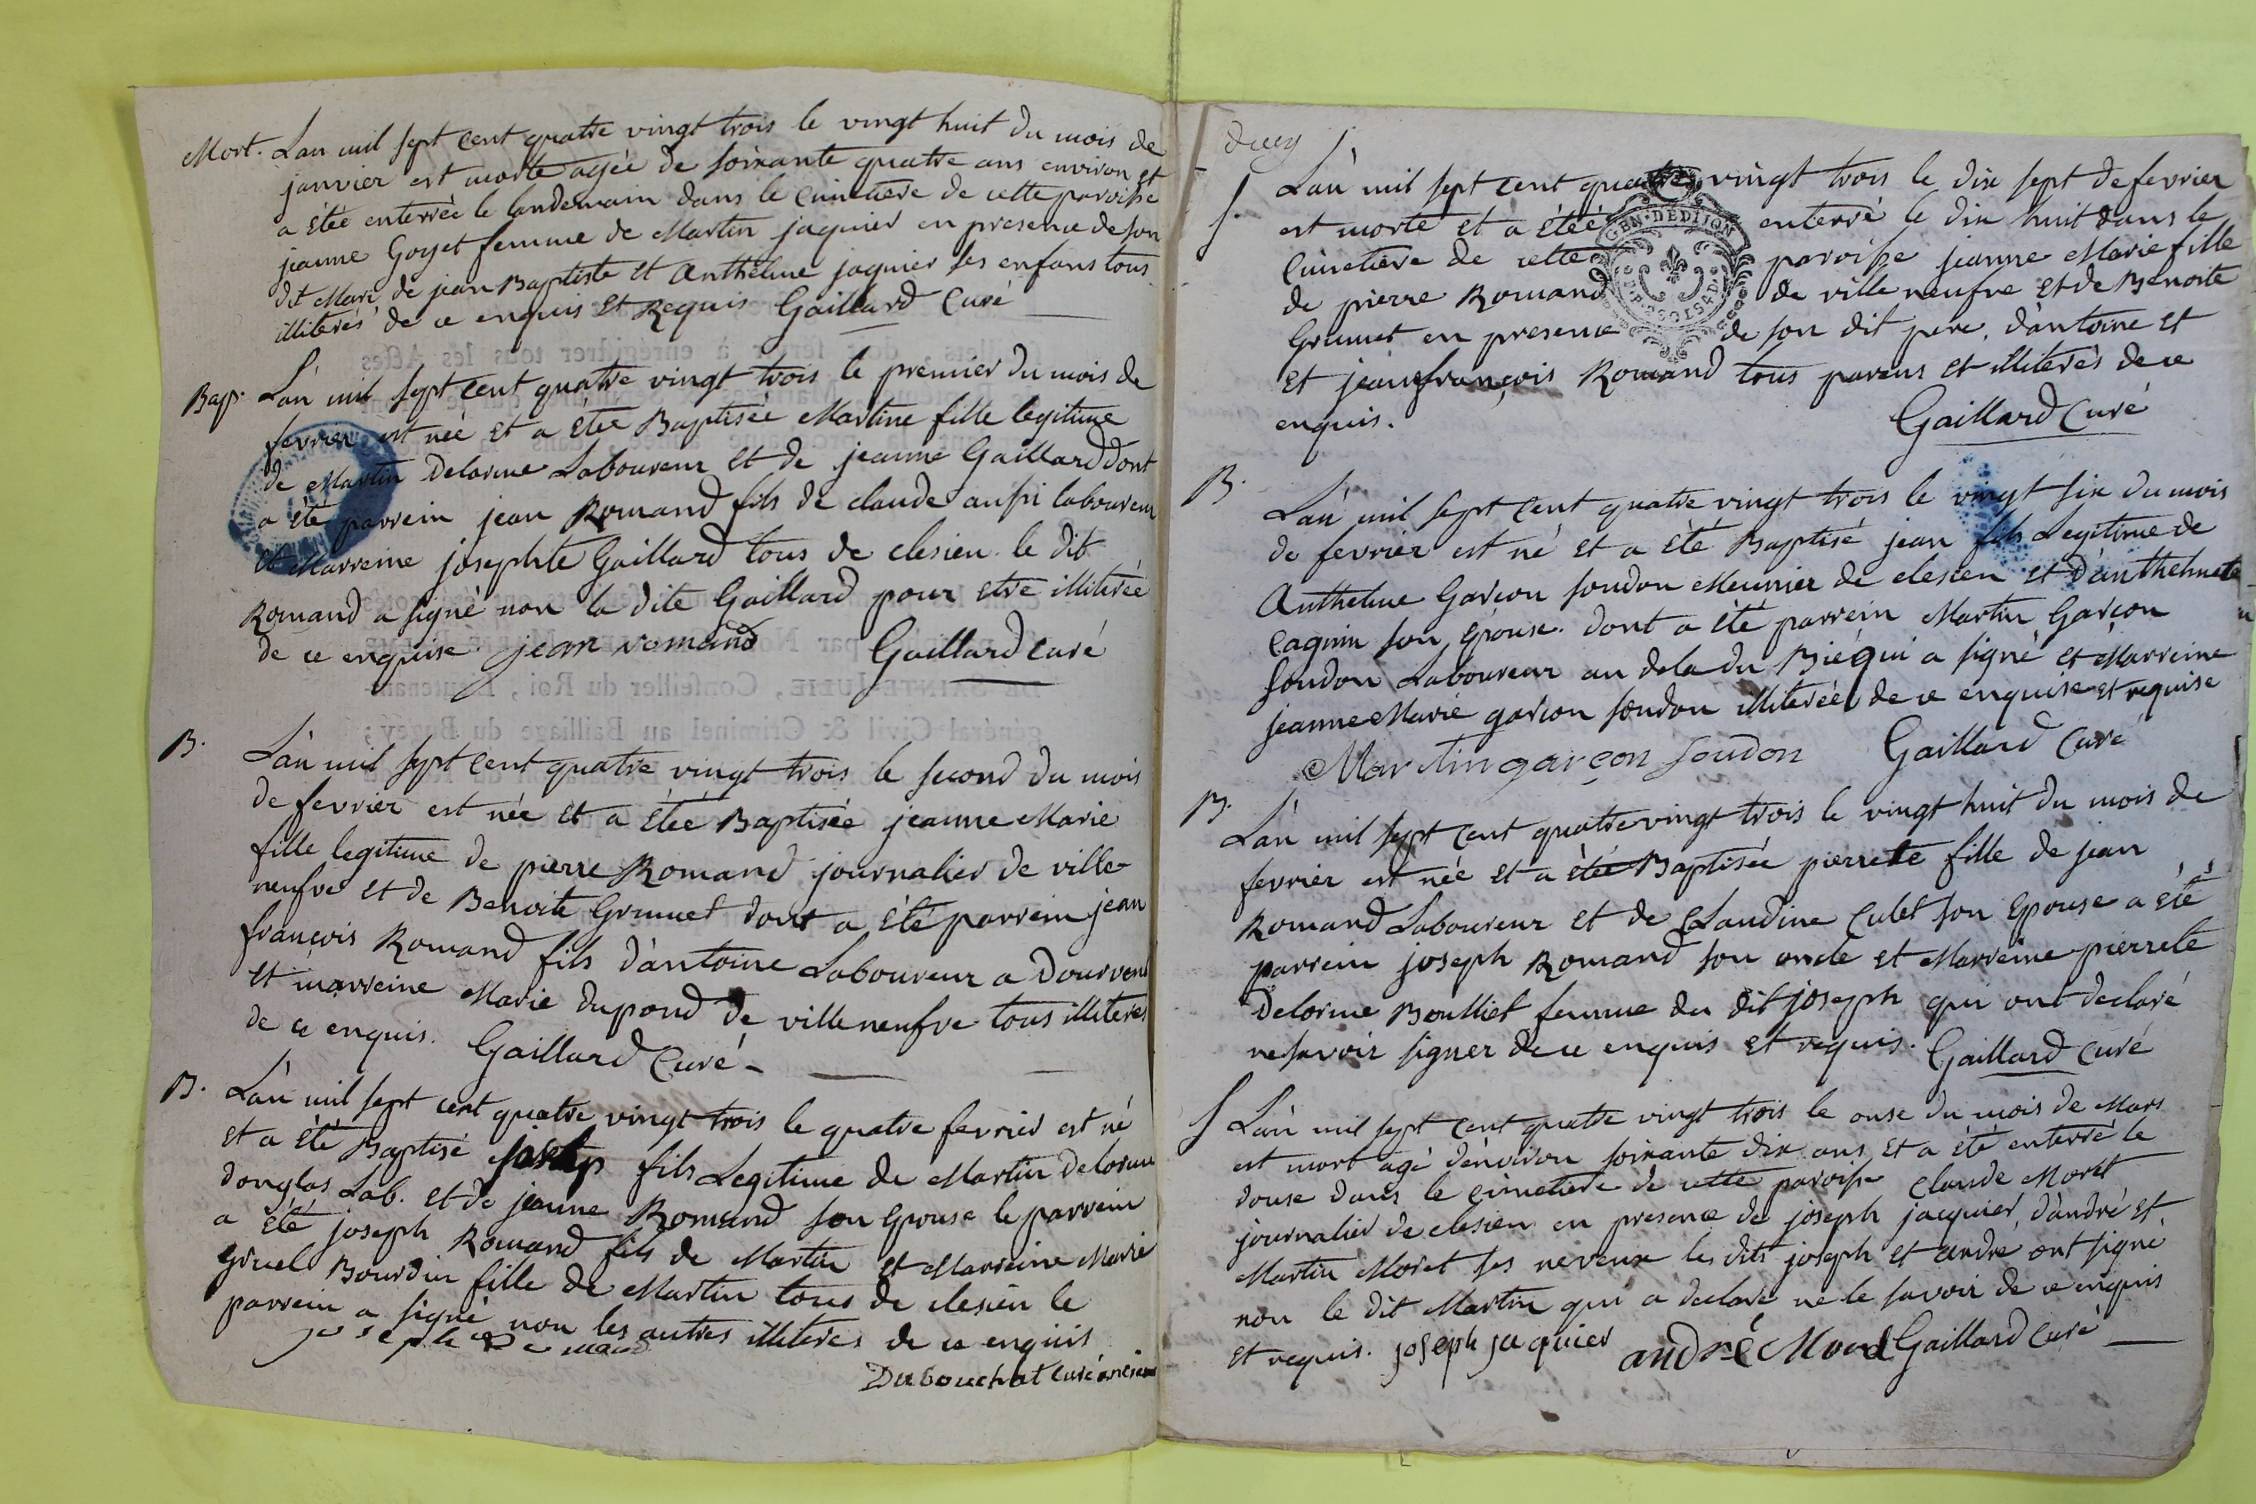 Mort. L'an mil sept cent quatre vingt trois le vingt huit du mois de
janvier est morte agée de soixante quatre ans environ et
a étée enterrée le landemain dans le cimetiere de cette paroisse
jeanne Goyet femme de Martin jaquier en presence de son
dit Mari de jean Baptiste et Anthelme jaquier ses enfans tous
illiterés de ce enquis et Requis Gaillard Curé
Bap. L'an mil sept cent quatre vingt trois le premier du mois de
fevrier est née et a étée Baptisée Martine fille legitime
de Martin Delorme Laboureur et de jeanne Gaillard dont
a été parrein jean Romand fils de claude aussi laboureur
et Marreine josephte Gaillard tous de clesieu le dit
Romand a signé non la dite Gaillard pour etre illiterée
de ce enquise jean romand Gaillard curé
B. L'an mil sept cent quatre vingt trois le second du mois
de fevrier est née et a étée Baptisée jeanne Marie
fille legitime de pierre Romand journalier de ville
neufve et de Benoite Grumet dont a été parrein jean
françois Romand fils d'antoine Laboureur a Dourvend
et marreine Marie dupond de villeneufve tous illiterés
de ce enquis. Gaillard Curé
B. L'an mil sept cent quatre vingt trois le quatre fevrier est né
et a été Baptisé fils Legitime de Martin Delorme
douglas Lab. et de jeanne Romand son Epouse le parrein
a été joseph Romand fils de Martin et Marreine Marie
gruel Bourdin fille de Martin tous de clesieu le
parrein a signé non les autres illiterés de ce enquis
joseph Romand
Dubouchat curé ancien
L'an mil sept cent quatre vingt trois le dix sept de fevrier
S. est morte et a étée enterré le dix huit dans le
GEN. DE DIJON
Cimetiere de cette paroisse jeanne Marie fille
de pierre Romand de ville neufve et de Benoite
Grumet en presence de son dit pere, d'antoine et
et jeanfrançois Romand tous parens et illiterés de ce
enquis. Gaillard Curé
B. L'an mil sept cent quatre vingt trois le vingt six du mois
de fevrier est né et a été Baptisé jean fils Legitime de
Anthelme Garçon soudon Meunier de clesieu et d'anthelmete
Caquin son Epouse. dont a été parrein Martin Garçon
soudon Laboureur au dela du Bié qui a signé et Marreine
jeanne Marie garçon soudon illiterée de ce enquise et requise
Martin garçon soudon Gaillard Curé
B. L'an mil sept cent quatre vingt trois le vingt huit du mois de
fevrier est née et a étée Baptisée pierrete fille de jean
Romand Laboureur et de Claudine Culet son Epouse a été
parrein joseph Romand son oncle et Marreine pierrete
Delorme Boulliet femme du dit joseph qui ont declaré
ne savoir signer de ce enquis et requis. Gaillard Curé
S L'an mil sept cent quatre vingt trois le onse du mois de Mars
est mort agé d'environ soixante dix ans et a été enterré le
douse dans le cimetiere de cette paroisse Claude Moret
journalier de clesieu en presence de joseph jacquier, d'andré et
Martin Moret ses neveux les dits joseph et andré ont signé
non le dit Martin qui a declaré ne le savoir de ce enquis
et requis. joseph jaquier andré Moret Gaillard Curé